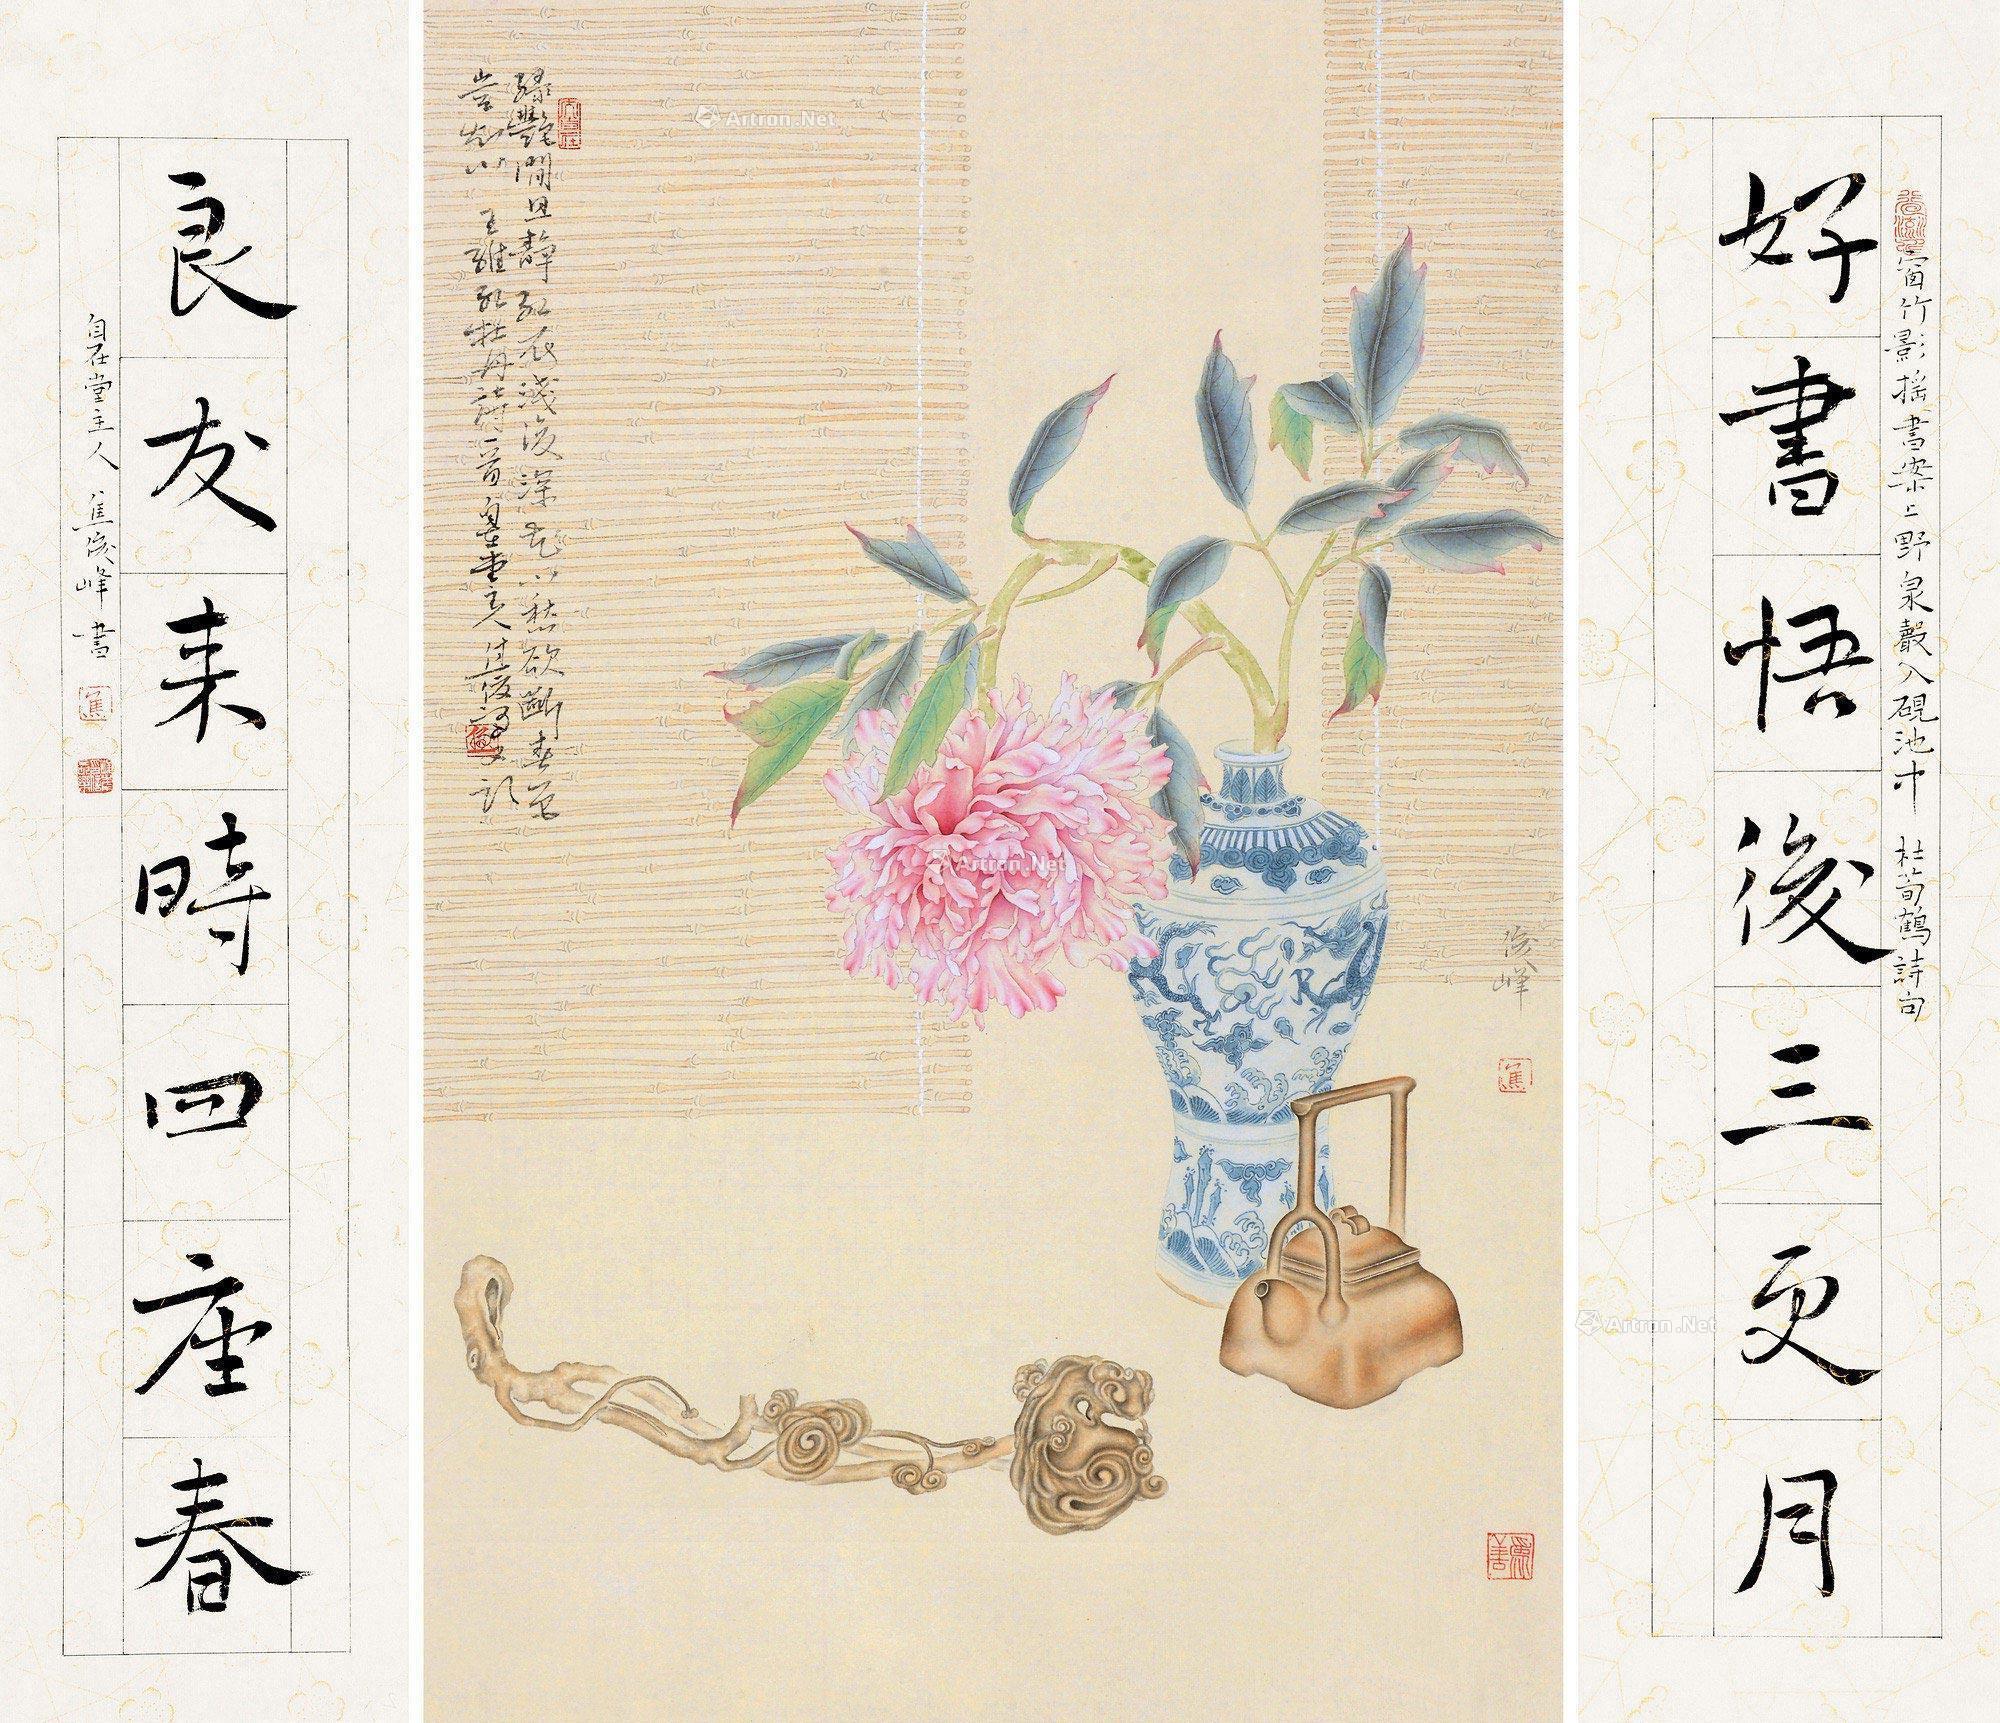 好書悟後三更月
窗竹影搖書案上野泉聲入硯池中 杜荀鶴詩句
綠艷閒且靜紅衣淺復深花心愁欲斷春色
豈知心 王維紅牡丹詩一首自在堂主人焦俊峰又記
俊峰
良友來時四座春
自在堂主人 焦俊峰書
Artron.Net
Artron.Net
Artron.Net